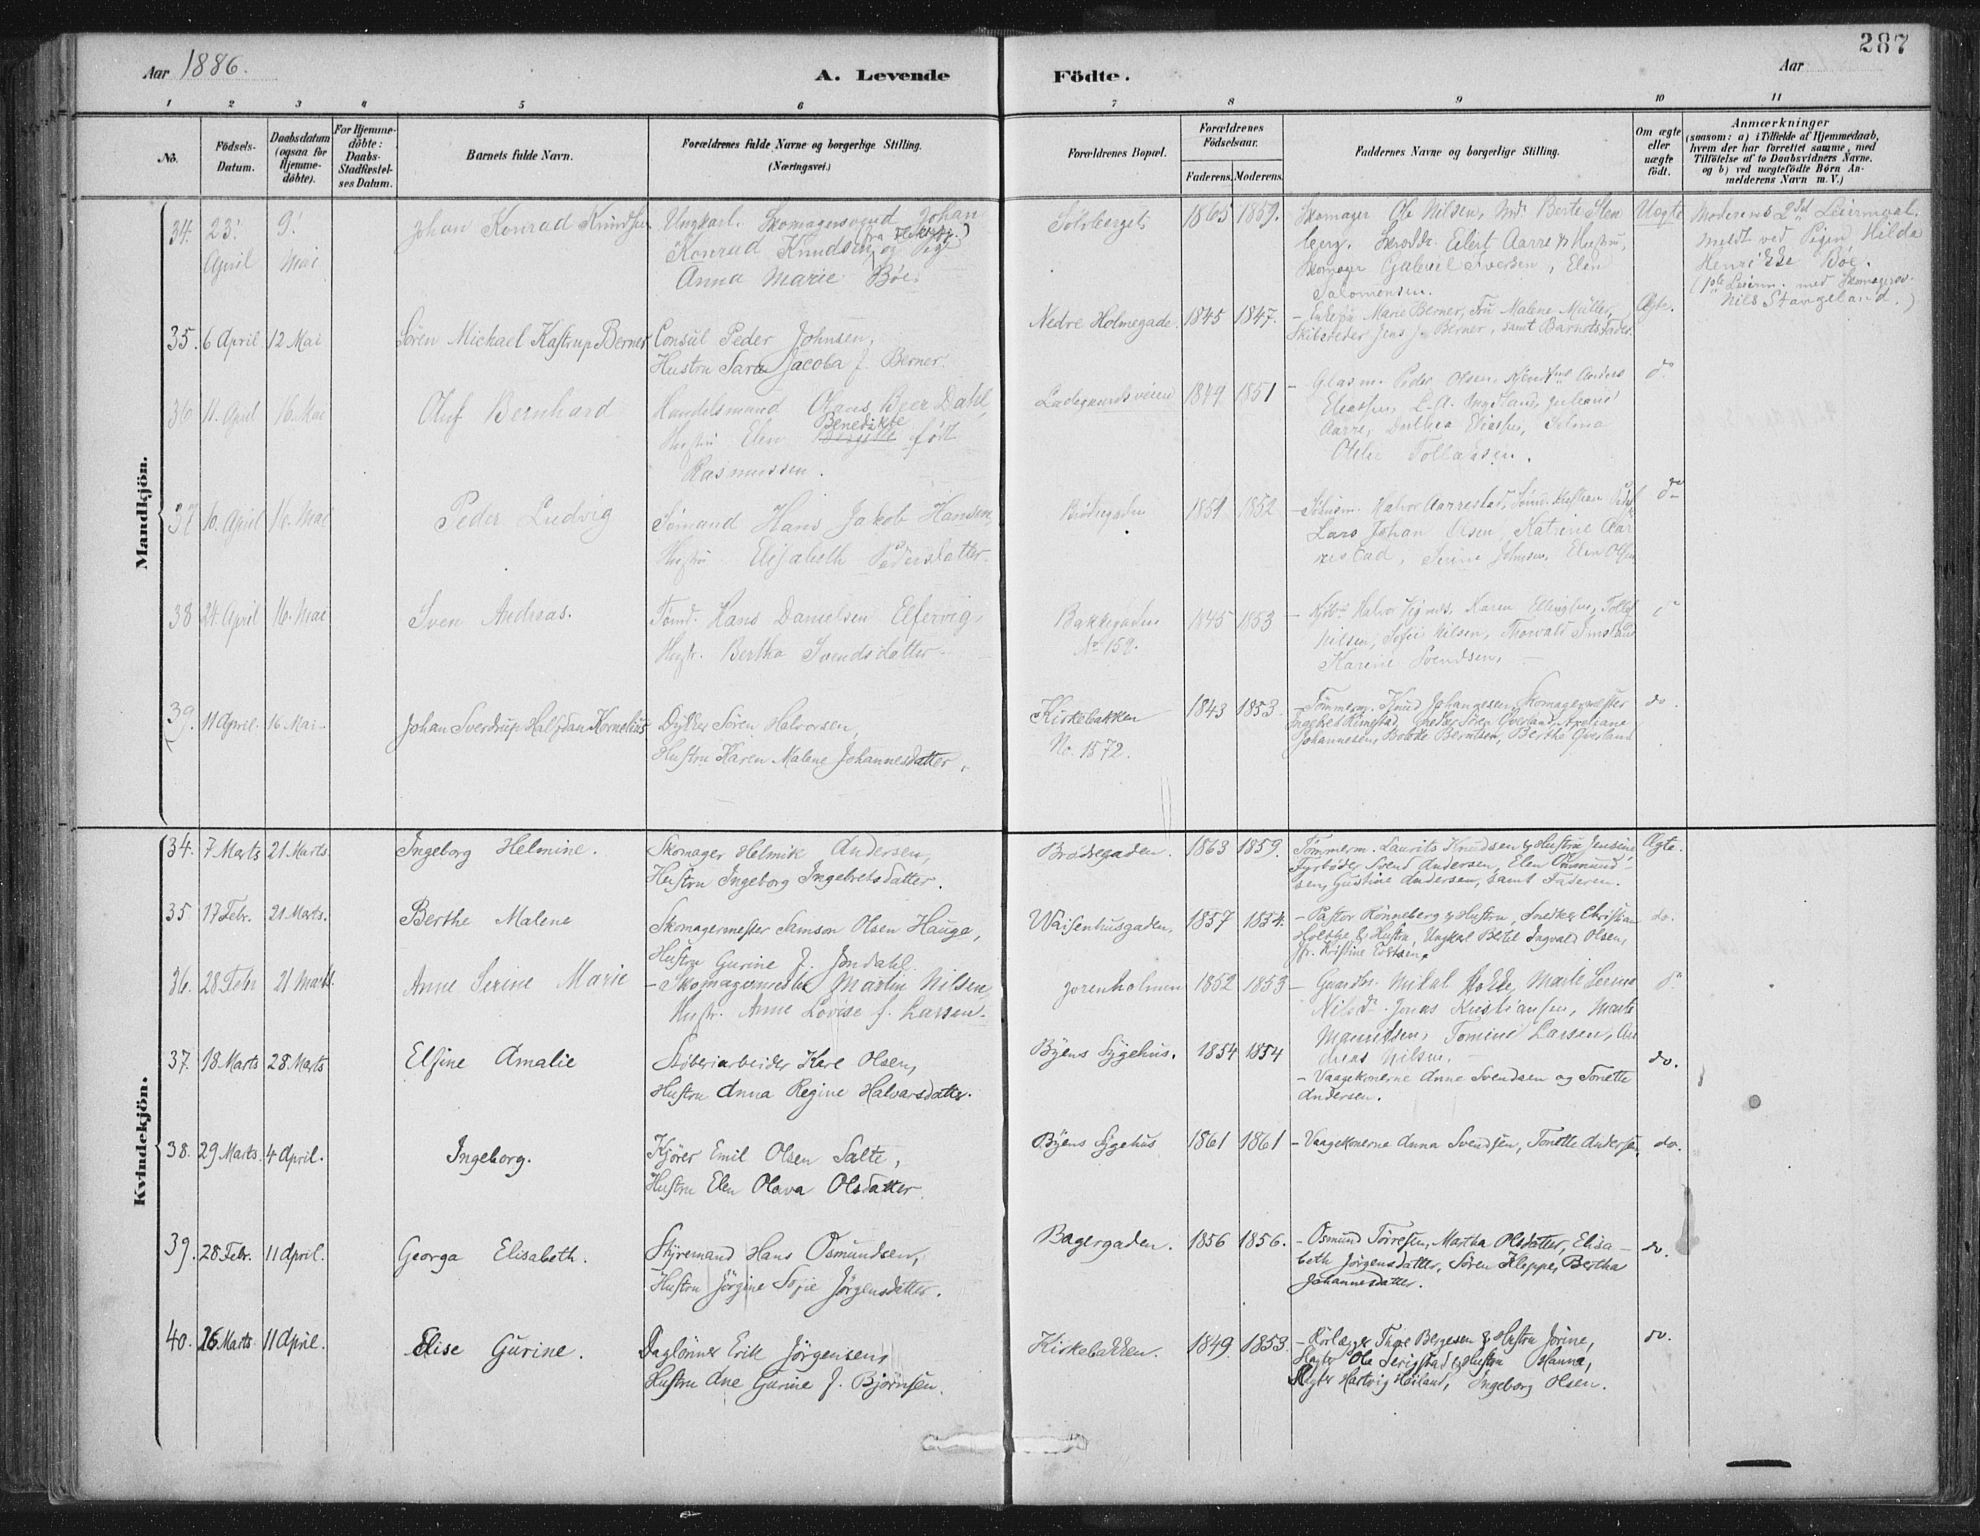 287
Aar 1886.
A. Levende Födte.
Aar
1 2 3 4 5 6 7 8 9 10 11
No.
Födsels-Datum.
Daabsdatum (ogsaa for Hjemme-döbte).
For Hjemme-döbte: Daabs-Stadfæstel-ses Datum.
Barnets fulde Navn.
Forældrenes fulde Navne og borgerlige Stilling.
(Næringsvei.)
Forældrenes Bopæl.
Forældrenes Födselsaar.
Faderens. Moderens.
Faddernes Navne og borgerlige Stilling.
Om ægte eller uægte födt.
Anmærkninger
(saasom: a) i Tilfælde af Hjemmedaab,
hvem der har forrettet samme, med
Tilföielse af to Daabsvidners Navne,
og b) ved uægtefödte Börn An-
melderens Navn m. V.)
Mandkjön.
34. 23' April 9' Mai Johan Konrad Knudsen
Ungkarl. Skomagersvend Johan
Konrad Knudsen og Pige
Anna Marie Böe.
Solvberget 1865 1859.
Skomager Ole Nilsen, Berte Sten
berg. Eilert Aarre & Hustru,
Skomager Gabriel Iversen, Elen
Salomonsen.
Uægte
Moderens 2det Leiermaal.
meldt ved Pigen Hilda
Henrikke Boe.
(1ste Leierm. med Skomagersv.
Nils Stangeland.)
35. 6 April 12 Mai Sören Michael Kastrup Berner
Consul Peder Johnsen,
Hustru Sara Jacoba f. Berner.
Nedre Holmegade 1845 1847.
- Marie Berner, Fru Malene Müller,
Skibsreder Jens J. Berner, samt Barnets Fader.
Ægte.
36 11. April 16. Mai Oluf Bernhard
Handelsmand Olaus Beer Dahl,
Hustru Elen Benedikte født
Rasmussen.
Ladegaardsveien 1849 1851
- Glasm. Peder Olsen, Anders
Eliassen, Juliane
Aarre, Dorthea Eliassen,
Otilie Tollaksen.
do
37 10. April 16. Mai Peder Ludvig
Sømand Hans Jakob Hansen,
Hustru Elisabeth Pedersdatter.
Brødregaden 1851 1852
- Halvor Aarrestad,
Lars Johan Olsen, Katrine Aar
restad, Serine Johnsen, Elen Olsen
do
38 24. April 16. Mai Sven Andreas.
Tømd. Hans Danielsen Elfervig,
Hustr. Bertha Svendsdatter.
Bakkegaden
No 159.
1845 1853
- Halvor Karen
Nilsen, Sofie Nilsen, Thorvald
Karine Svendsen.
do
39. 11 April. 16 Mai Johan Sverdrup Halfdan Kornelius
Dykker Sören Halvorsen,
Hustru Karen Malene Johannesdatter.
Kirkebakken
No. 1572.
1843 1853.
- Tömmerm. Knud Johannesen, Skomagermester
Ingebret Rimestad, Sören Överland, Axeliane
Johannesen, Bolette Berntsen, Berthe Överland
do.
Kvindekjön.
34. 7 Marts 21 Marts. Ingeborg Helmine.
Skomager Helmik Andersen,
Hustru Ingeborg Ingebretsdatter.
Brödregaden. 1863 1859.
Tömmerm. Laurits Knudsen & Hustru Jensine,
Fyrböder Svend Andersen, Elen Osmund-
sen, Gustine Andersen, samt Faderen.
Ægte.
35 17 Febr. 21 Marts. Berthe Malene
Skomagermester Samson Olsen Hauge,
Hustru Gurine f. Jondahl.
Waisenhusgaden. 1857 1854.
- Pastor Rönneberg & Hustru, Snedker Christian
Holthe & Hustru, Ungkal Bertel Ingvald Olsen,
jfr. Kristine
do.
36. 28 Febr 21 Marts. Anne Serine Marie
- Skomagermester Martin Nilsen,
Hustr. Anne Lovise f. Larsen.
Jorenholmen 1852 1853
- Mikal Holte, Marte Serine
Nilsd. Jonas Kristiansen, Marte
Mauritsen, Tomine Larsen, An
dreas Nilsen.
do
37. 18 Marts 28 Marts Elfine Amalie
Støberiarbeider Kare Olsen,
Hustru Anna Regine Halvorsdatter.
Byens Sygehus. 1854 1854
- Vaagekonerne Anne Svendsen og Tonette
Andersen.
do.
38. 29 Marts. 4 April. Ingeborg.
Kjörer Emil Olsen Salte,
Hustru Elen Olava Olsdatter.
Byens Sygehus 1861 1861
- Vaagekonerne Anna Svendsen, Tonette Andersen,
do.
39. 28 Febr. 11 April. Georga Elisabeth.
Styremand Hans Osmundsen,
Hustru Jörgine Sofie Jörgensdatter.
Bagergaden. 1856 1856.
- Osmund Törresen, Martha Olsdatter, Elisa-
beth Jörgensdatter, Sören Kleppe, Bertha
Johannesdatter.
do.
40. 26 Marts 11 April. Elise Gurine.
Daglönner Erik Jörgensen,
Hustru Ane Gurine f. Bjørnsen.
Kirkebakken. 1849. 1853.
- Rörlægger Thore Bergesen & Hustru Jorine,
Slagter Ole Serigstad & Hustru Hanna,
Slagter Hartvig Höiland, Ingeborg Olsen.
do.